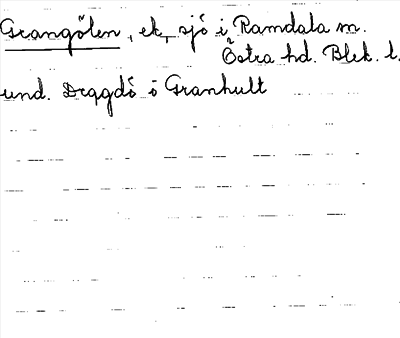 Grangölen, ek, sjö i Ramdala sn.
Östra hd. Blek. l.
und. Dragdö o Granhult